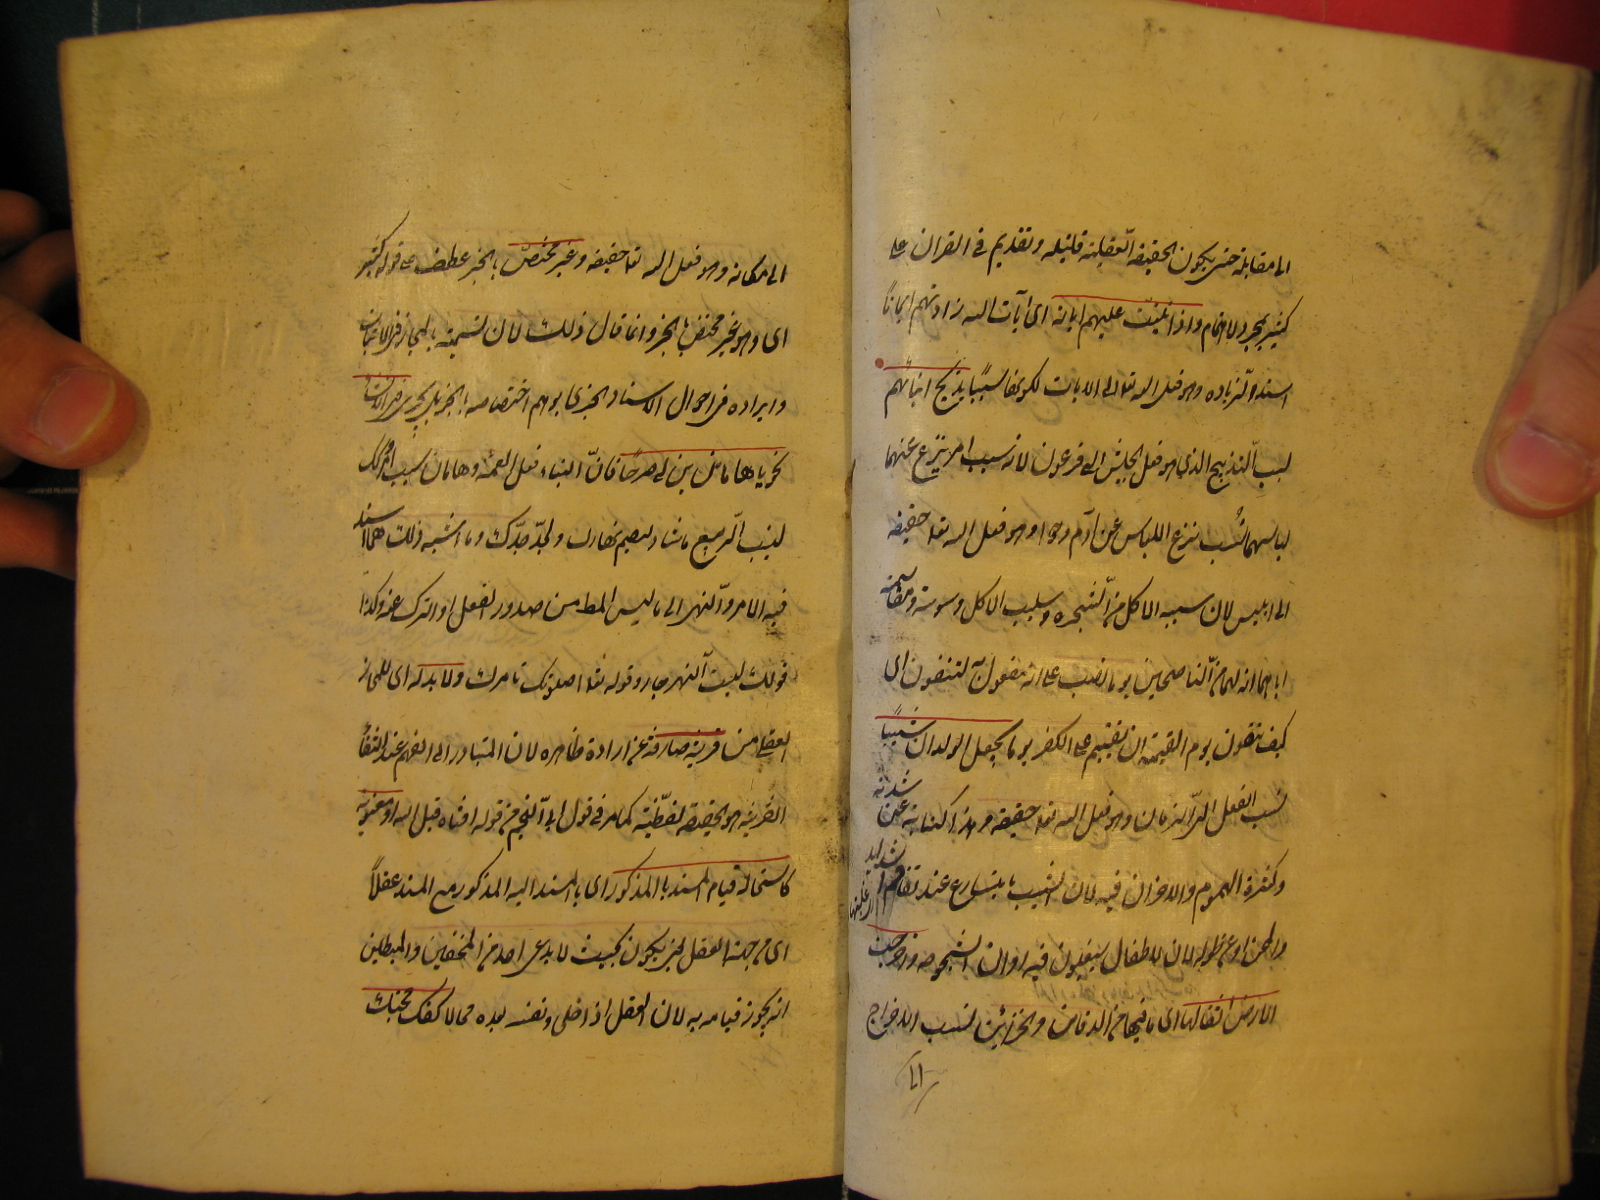 الى مقابلة حتى يكون الحقيقة العقلية قليله وتقديم فى القران على
كثير لمجرد الاهتمام واذا تليت عليهم اياته اى آيات الله زادتهم ايمانا
اسند الزياده وهو فعل الله تعالى الى الايات لكونها سببا يذبح ابناءهم
نسب التذبيح الذي هو فعل الجيش الى فرعون لانه سبب امر ينزع عنهما
لباسهما نسب نزع اللباس عن آدم وحوا وهو فعل الله تعا حقيقة
الى ابليس لان سببه الاكل من الشجره وسبب الاكل وسوسته ومقاسمته
اياهما انه لهما من الناصحين يوما نصب على انه مفعول به لتتقون اى
كيف تتقون يوم القيمة ان بقيتم على الكفر يوما يجعل الولدان شيبا
نسب الفعل الى الزمان وهو فعل الله تعا حقيقة وهذا كناية عن شدته
وكثرة الهموم والاحزان فيه لان الشيب مما يتسارع عند تفاقم الشدائد
والمحن او عن طوله لان الاطفال يبلغون فيه اوان الشيخوخه واخرجت
الارض اثقالها اى ما فيها من الدفائن والخزائن نسب الاخراج
الى
الى مكانه وهو فعل الله تعا حقيقة وغير مختص بالخبر عطف على قوله كثير
اى وهو غير مختص بالخبر وانما قال ذلك لان تسميته بالمجاز فى الاثبات
وايراده فى احوال الاسناد الخبرى يوهم اختصاصه بالخبر بل يجرى فى الانشاء
نحو يا هامان ابن لى صرحا فان البناء فعل العملة وهامان سبب امر وكذلك
لينبت الربيع ما شاء وليصم نهارك وليجد جدك وما اشبه ذلك مما اسند
فيه الامر والنهى الى ما ليس المط من صدور الفعل او الترك عنه وكذا
قولك ليت النهر جار وقوله تعا اصلوتك تامرك ولا بد له اى للمجاز
العقلى من قرينة صارفة عن ارادة ظاهره لان المتبادر الى الفهم عند انتفاء
القرينة هو الحقيقة لفظية كما مر فى قول ابى النجم من قوله افناه قيل الله او معنوية
كاستحالة قيام المسند بالمذكور اى بالمسند اليه المذكور مع المسند عقلاً
اى من جهة العقل يعنى يكون بحيث لا يدعى احد من المحقين والمبطلين
انه يجوز قيامه به لان العقل اذا خلى ونفسه يعده محالا كقولك محبتك